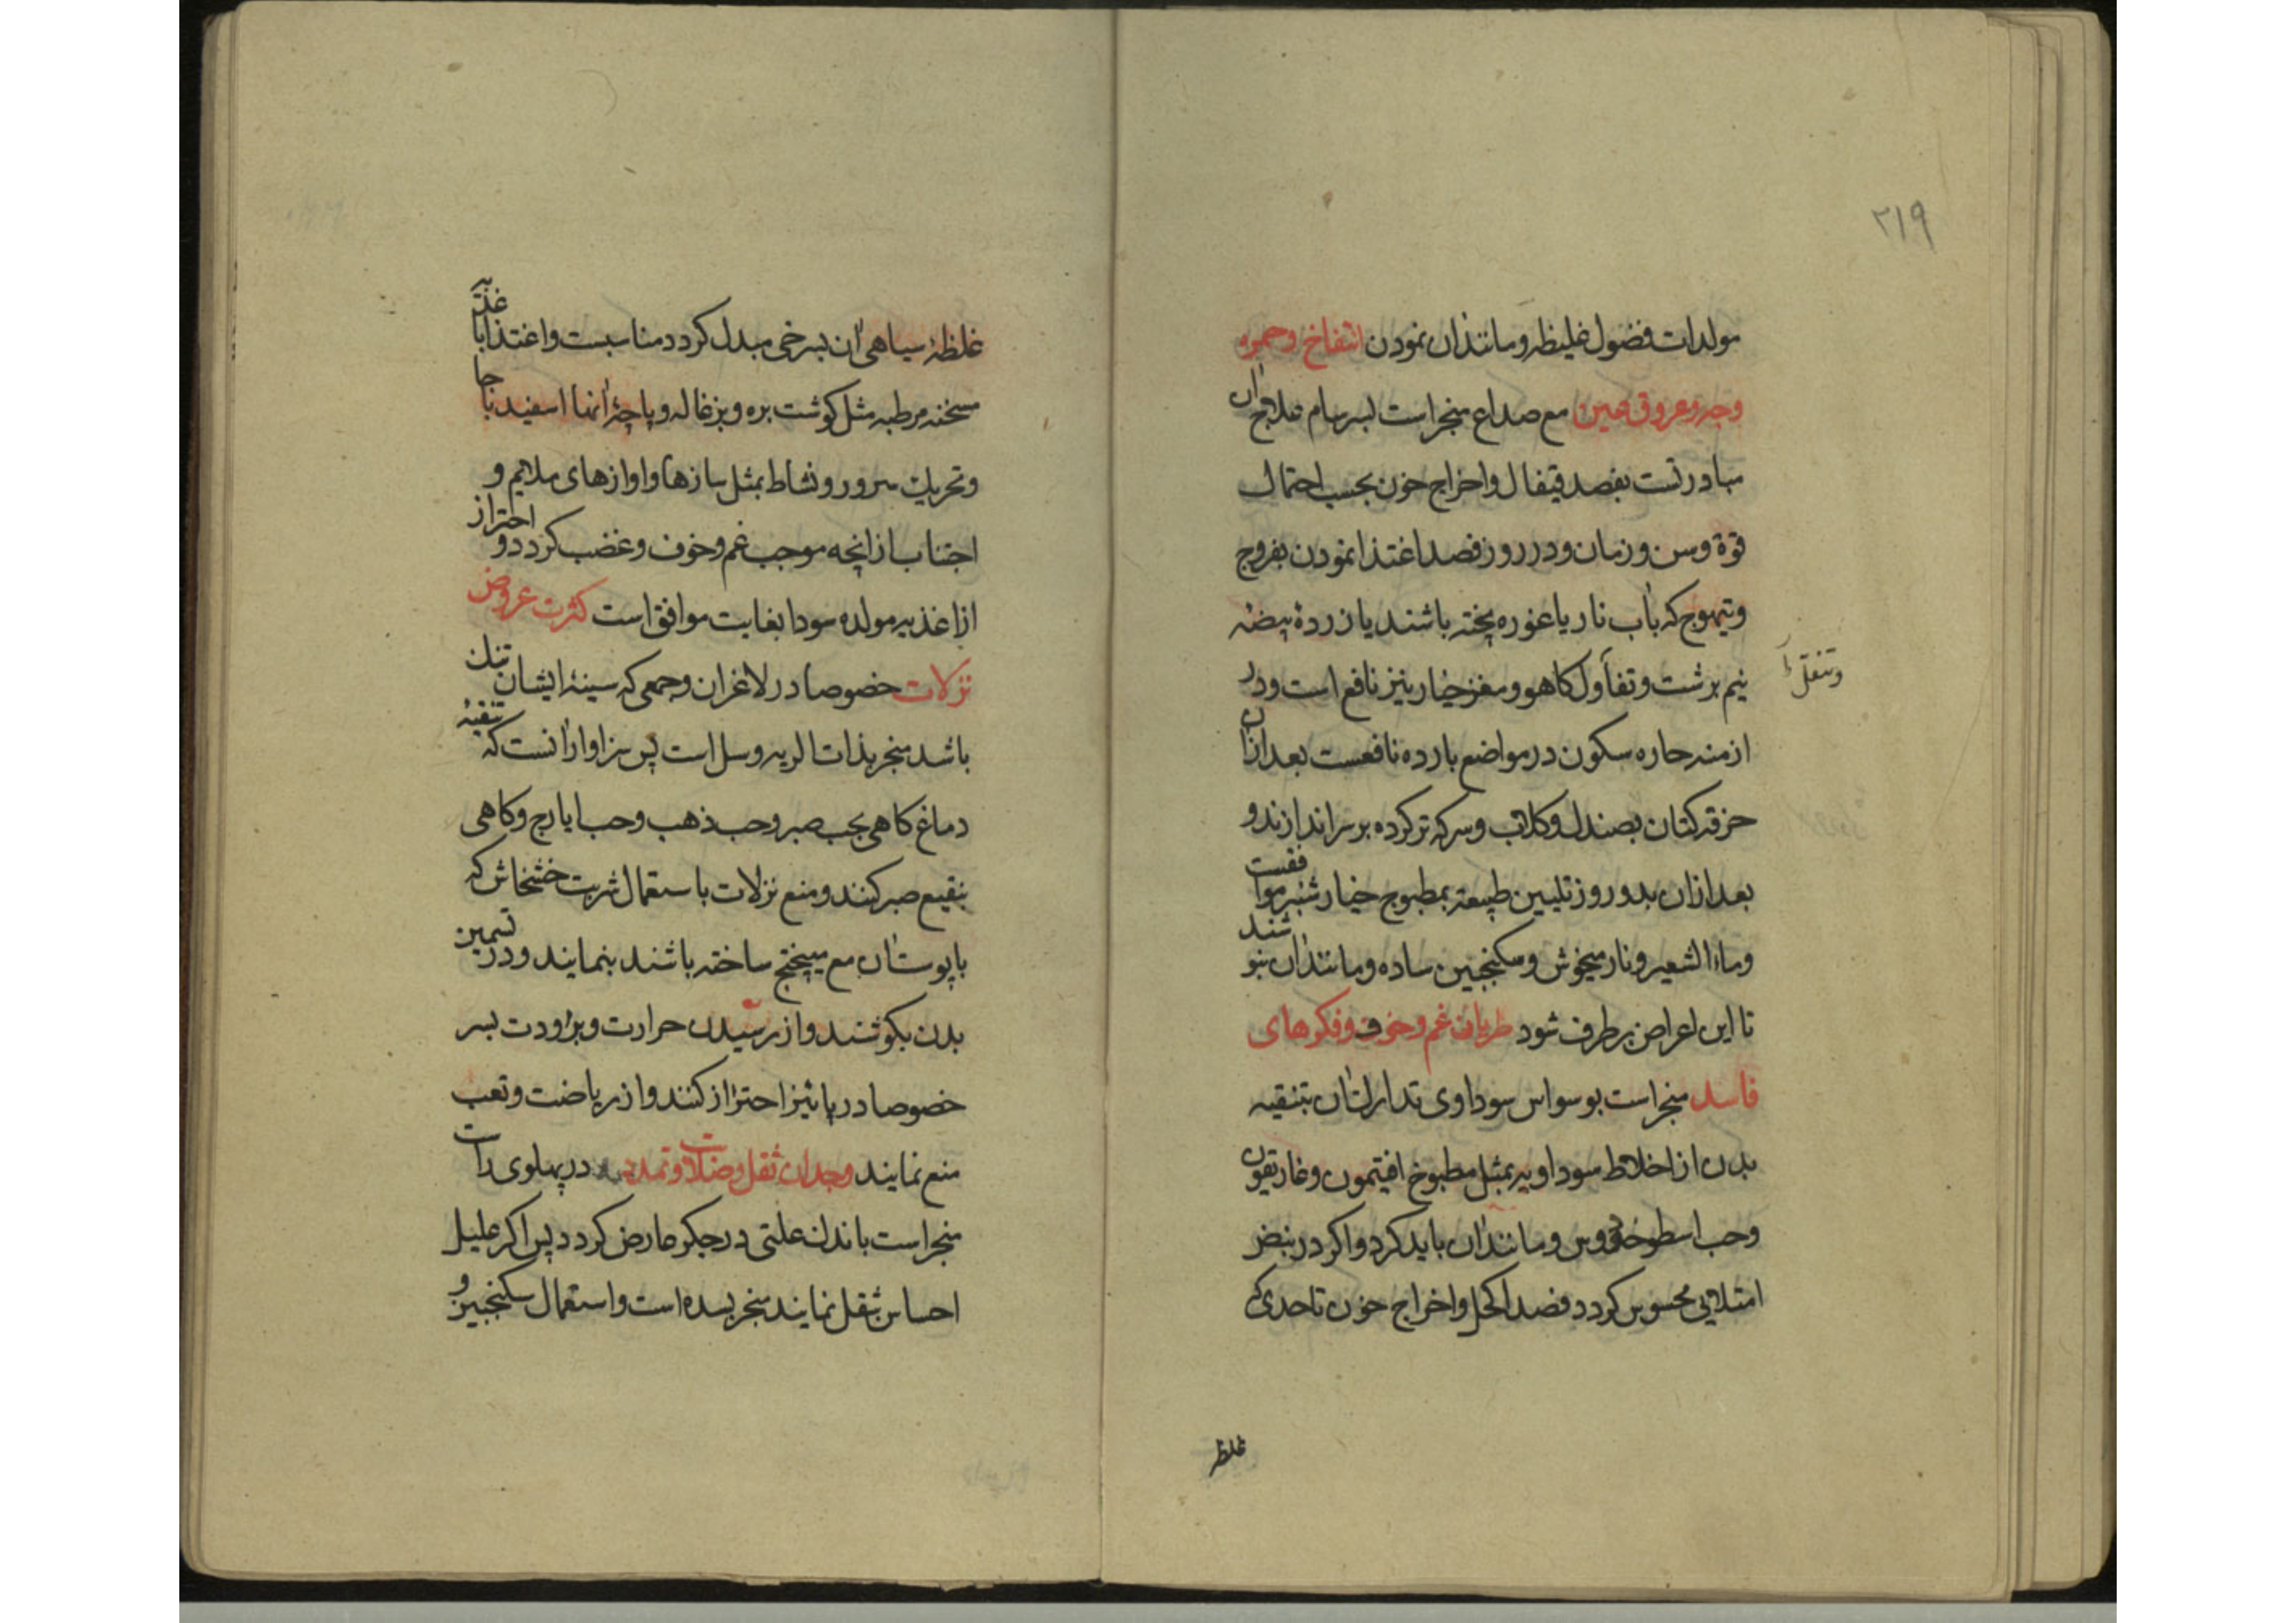 ٢١٩
مولدات فضول غلیظه و مانند ان نمودن انتفاخ و حمره
وجه و عروق عین مع صداع منجر است بسرسام علاج ان
مبادرتست بفصد قیفال و اخراج خون بحسب احتمال
قوة و سن و زمان و در روز فصد اغتذا نمودن بفروج
و تیهوج که باب نار یا غوره پخته باشند یا زردهٔ بیضهٔ
نیم برشت و تناول کاهو و مغز خیار نیز نافع است و در
وتنقل
ازمنه حاره سکون در مواضع بارده نافعست بعد ازان
خرقه کتان بصندل و کلاب و سرکه تر کرده بر سر اندازند و
بعد ازان بدو روز تلیین طبیعة بمطبوخ خیار شنبر موافقست
و ماء الشعیر و نار میخوش و سکنجبین ساده و مانند ان بنوشند
تا این اعراض بر طرف شود طریان غم و خوف و فکرهای
فاسد منجر است بوسواس سوداوی تدارک ان بتنقیه
بدن از اخلاط سوداویه بمثل مطبوخ افتیمون و غاریقون
و حب اسطوخودوس و مانند ان باید کرد و اکر در نبض
امتلایی محسوس کردد فصد اکحل و اخراج خون تا حدی که
غلظه
غلظهٔ سیاهی ان بسرخی مبدل کردد مناسبست و اغتذا باغذیه
مسخنه مرطبه مثل کوشت بره و بزغاله و پاچهٔ انها اسفید باجا
و تحریک سرور و نشاط بمثل سازها و اوازهای ملایم و
اجتناب از انچه موجب غم و خوف و غضب کردد و احتراز
از اغذیه مولده سودا بغایت موافق است کثرت عروض
نزلات خصوصا در لاغران و جمعی که سینهٔ ایشان تنک
باشد منجر بذات الریه و سل است پس سزاوار انست که تنقیهٔ
دماغ کاهی بحب صبر و حب ذهب و حب ایارج و کاهی
بنقیع صبر کنند و منع نزلات باستعمال شربت خشخاش که
با پوست ان مع میپختج ساخته باشند بنمایند و در تسمین
بدن بکوشند و از رسیدن حرارت و برودت بسر
خصوصا در پائیز احتراز کنند و از ریاضت و تعب
منع نمایند وجدان ثقل و ضلات و تمدد در پهلوی راست
منجر است باندک علتی در جکر عارض کردد پس اکر علیل
احساس ثقل نمایند منجر بسده است و استعمال سکنجبین و